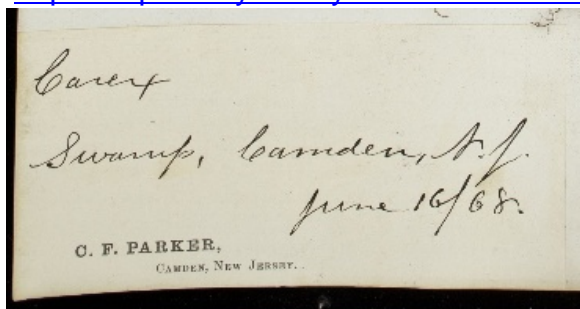 Carex
Swamp, Camden, N.J.
June 16/68.
C. F. PARKER,
CAMDEN, NEW JERSEY.